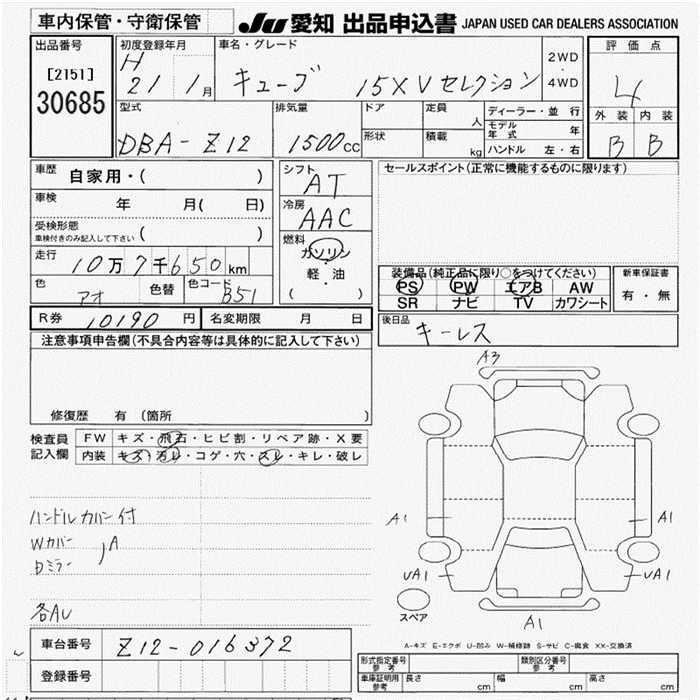 車内保管・守衛保管
JU 愛知 出品申込書 JAPAN USED CAR DEALERS ASSOCIATION
出品番号
[2151]
30685
初度登録年月
H
21 1月
車名・グレード
キューブ 15X Vセレクション
2WD
・
4WD
評価点
4
外装 内装
B B
型式
DBA-Z12
排気量
1500cc
ドア
形状
定員
人
積載
kg
ディーラー・並行
モデル年式 年
ハンドル 左・右
車歴
自家用・( )
車検
年 月( 日)
受検形態
車検付きのみ記入して下さい ( )
走行
10万7千650km
色
アオ
色替
色コード
B51
シフト
AT
冷房
AAC
燃料
ガソリン
・
軽・油
・
( )
セールスポイント(正常に機能するものに限ります)
装備品(純正品に限り○をつけてください)
PS PW エアB AW
SR ナビ TV カワシート
新車保証書
有・無
R券 10190 円
名変期限 月 日
後日品
キーレス
注意事項申告欄(不具合内容等は具体的に記入して下さい)
修復歴 有 (箇所 )
検査員
記入欄
FW キズ・飛石・ヒビ割・リペア跡・X要
内装 キズ・汚レ・コゲ・穴・スレ・キレ・破レ
ハンドルカバー付
Wカバー
Dミラー
)A
各AU
A3
A1
A1
UA1
UA1
スペア
A1
A-キズ E-エクボ U-凹み W-補修跡 S-サビ C-腐食 XX-交換済
車台番号
Z12-016372
登録番号
型式指定番号
参考
類別区分番号
参考
車庫証明用
参考
長さ cm
幅 cm
高さ cm